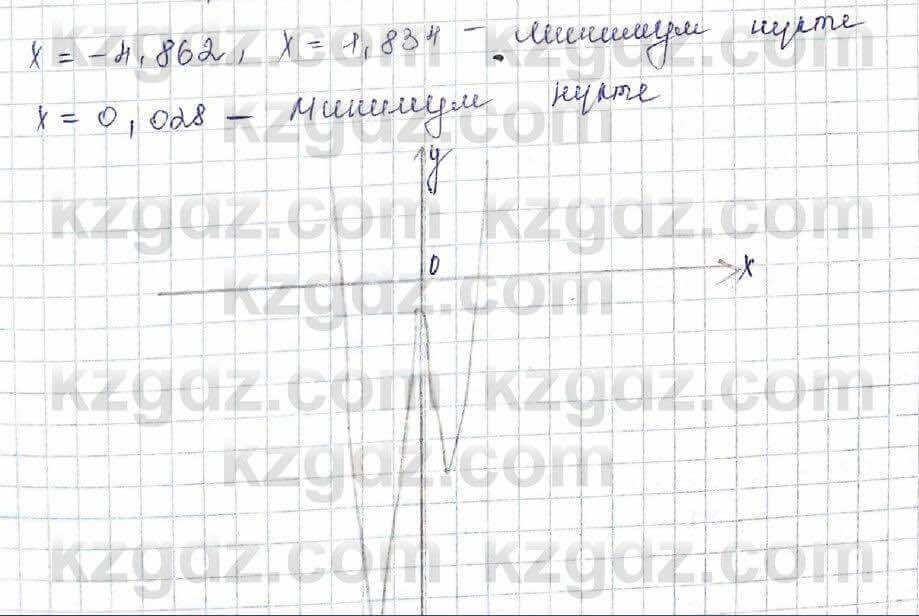 x = -4,862, x = 1,834 - минимум нүкте
x = 0,028 - минимум нүкте
y
0
x
kzgdz.com kzgdz.com
kzgdz.com
kzgdz.com kzgdz.com
kzgdz.com
kzgdz.com kzgdz.com